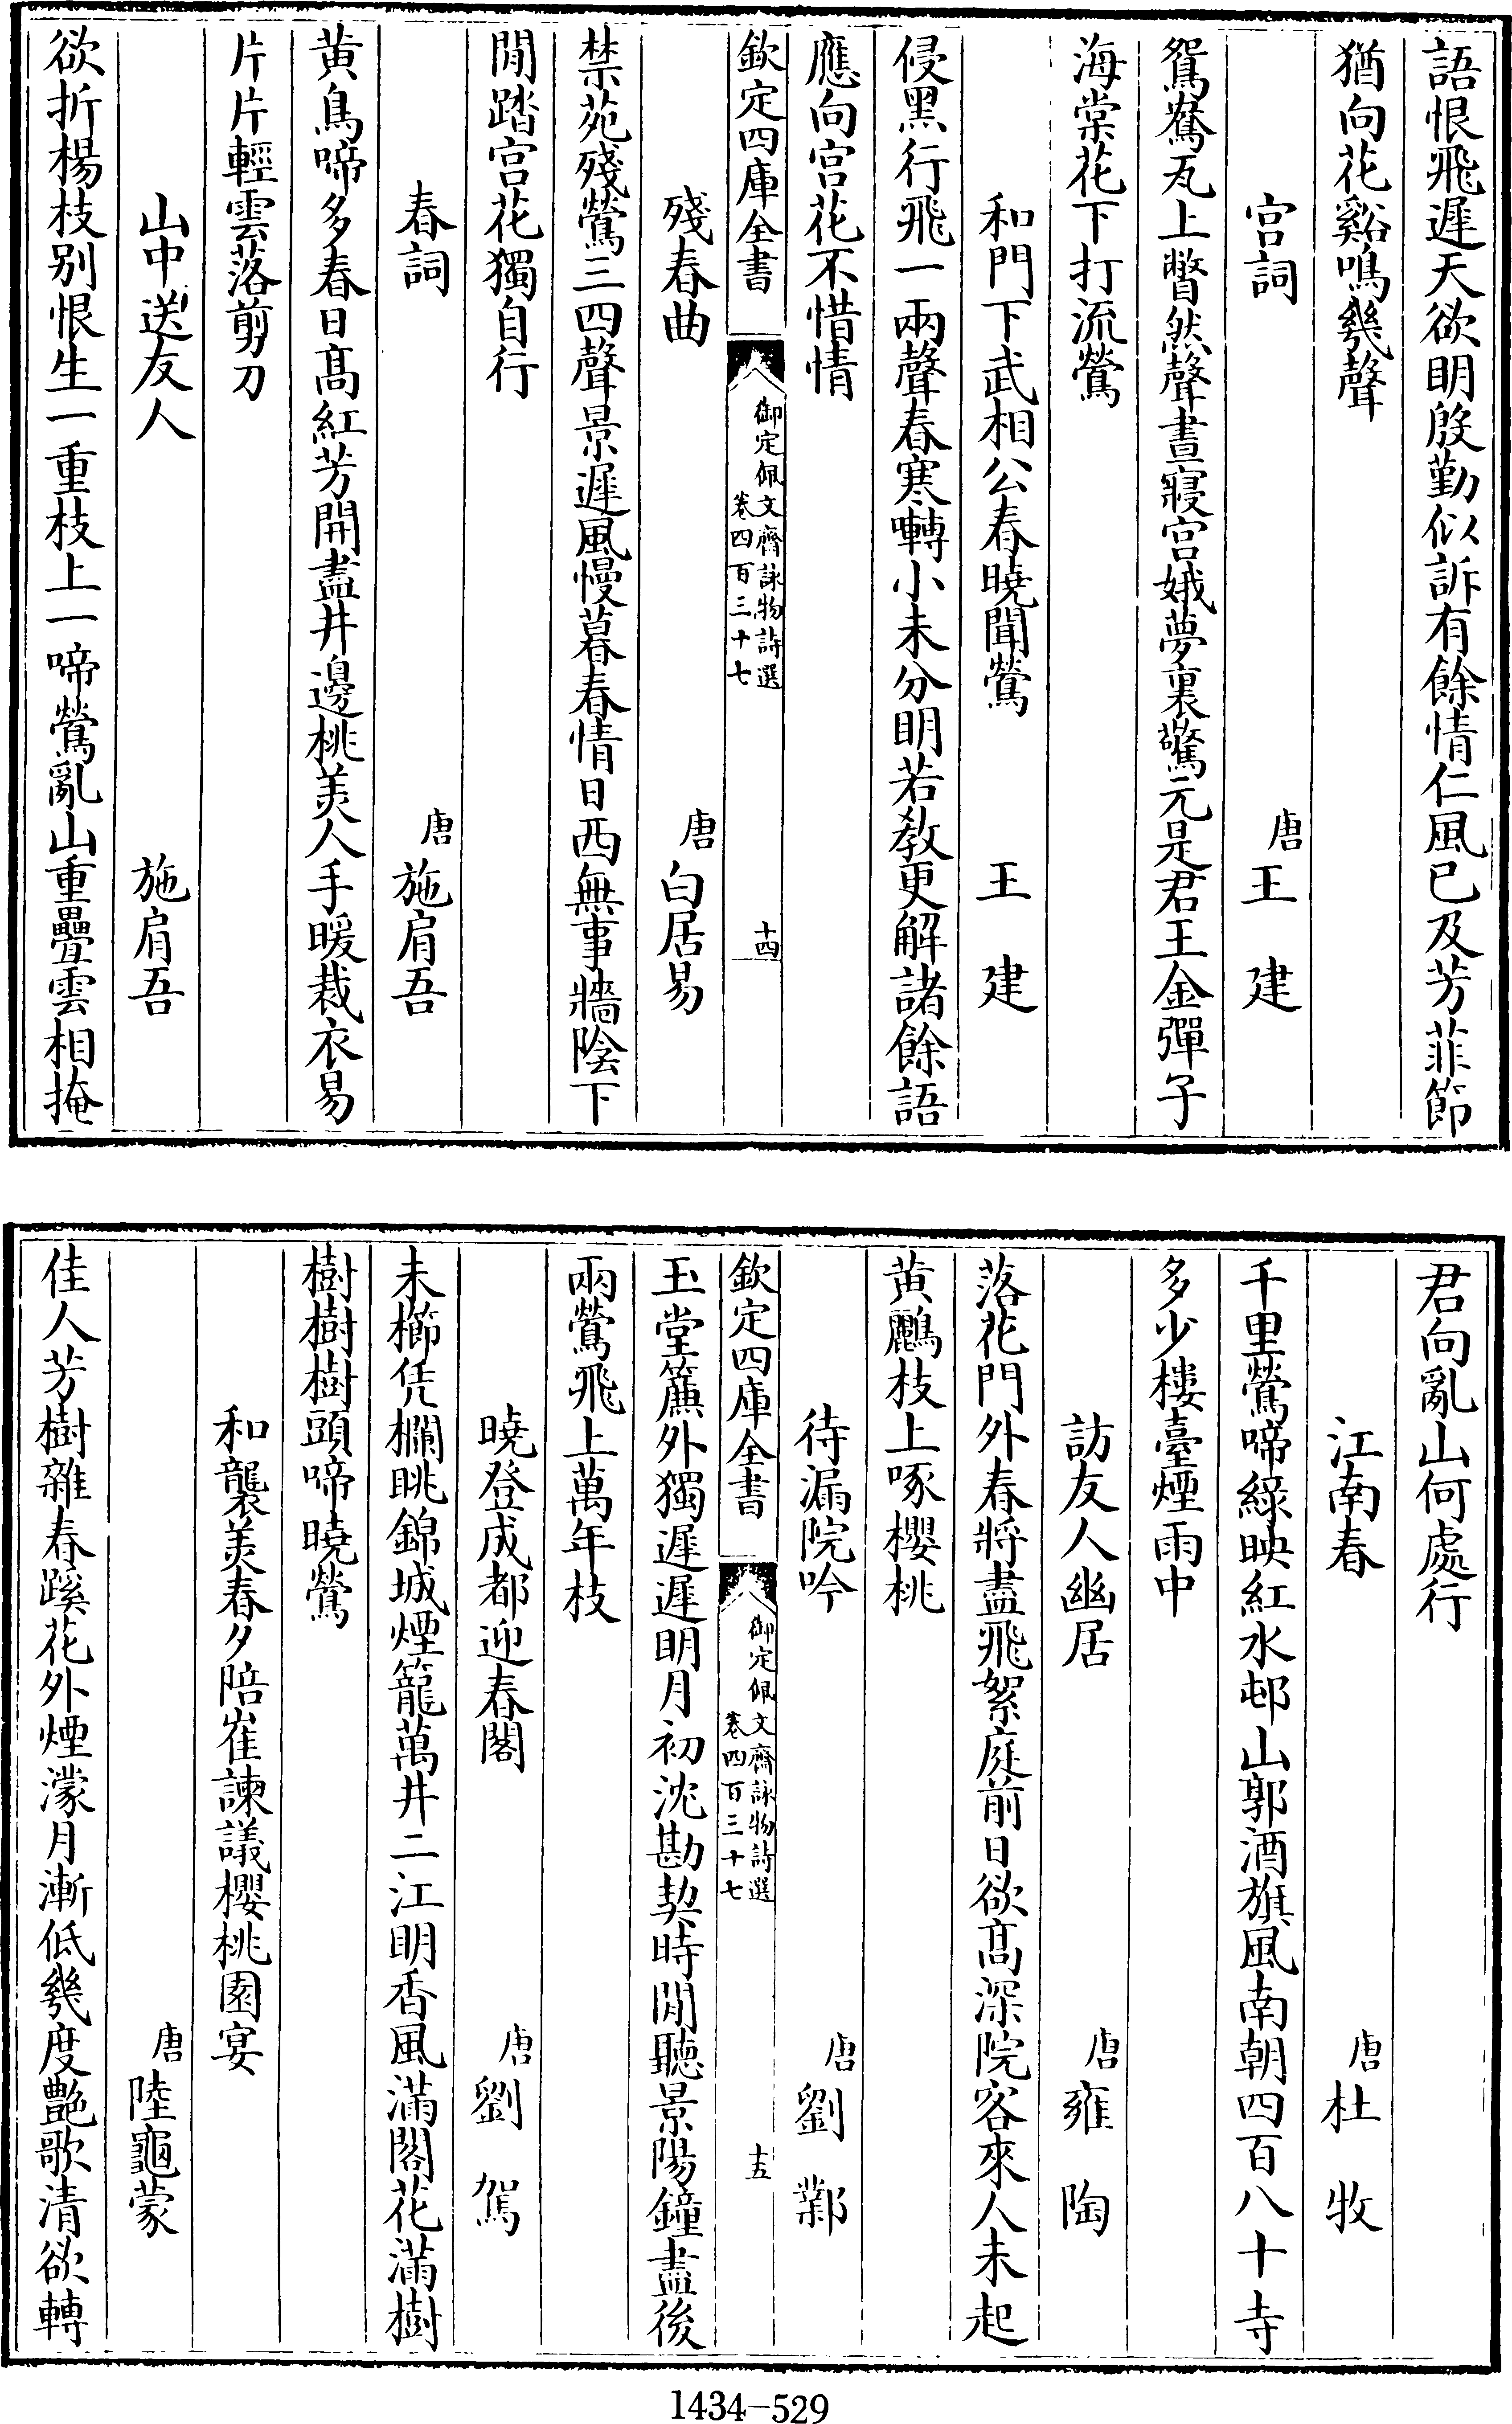 語恨飛遲天欲明殷勤似訴有餘情仁風已及芳菲節
猶向花谿鳴幾聲
宫詞 唐王建
鴛鴦瓦上瞥然聲晝寢宫娥夢裏驚元是君王金彈子
海棠花下打流鶯
和門下武相公春曉聞鶯 王建
侵黑行飛一兩聲春寒囀小未分明若教更解諸餘語
應向宫花不惜情
欽定四庫全書 御定佩文齋詠物詩選 卷四百三十七 十四
殘春曲 唐白居易
禁苑殘鶯三四聲景遲風慢暮春情日西無事牆陰下
閒踏宫花獨自行
春詞 唐施肩吾
黄鳥啼多春日髙紅芳開盡井邊桃美人手暖裁衣易
片片輕雲落剪刀
山中送友人 施肩吾
欲折楊枝别恨生一重枝上一啼鶯亂山重疊雲相掩
君向亂山何處行
江南春 唐杜牧
千里鶯啼綠映紅水邨山郭酒旗風南朝四百八十寺
多少樓臺煙雨中
訪友人幽居 唐雍陶
落花門外春將盡飛絮庭前日欲髙深院客來人未起
黄鸝枝上啄櫻桃
待漏院吟 唐劉鄴
欽定四庫全書 御定佩文齋詠物詩選 卷四百三十七 十五
玉堂簾外獨遲遲明月初沈勘契時閒聽景陽鐘盡後
兩鶯飛上萬年枝
曉登成都迎春閣 唐劉駕
未櫛凭欄眺錦城煙籠萬井二江明香風滿閣花滿樹
樹樹樹頭啼曉鶯
和襲美春夕陪崔諫議櫻桃園宴
唐陸龜蒙
佳人芳樹雜春蹊花外煙濛月漸低幾度艶歌清欲轉
1434-529